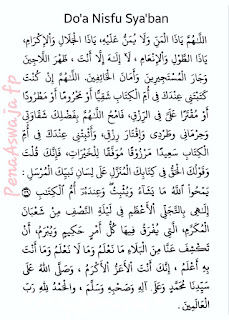 Do'a Nisfu Sya'ban
اَللّٰهُمَّ يَاذَا الْمَنِّ وَلَا يُمَنُّ عَلَيْهِ، يَاذَا الْجَلَالِ وَالْاِكْرَامِ،
يَاذَا الطَّوْلِ وَالْاِنْعَامِ، لَااِلٰهَ اِلَّا اَنْتَ، ظَهْرَ اللَّاجِيْنَ
وَجَارَ الْمُسْتَجِيْرِيْنَ وَاَمَانَ الْخَائِفِيْنَ. اَللّٰهُمَّ اِنْ كُنْتَ
كَتَبْتَنِيْ عِنْدَكَ فِيْ اُمِّ الْكِتَابِ شَقِيًّا اَوْ مَحْرُوْمًا اَوْ مَطْرُوْدًا
اَوْ مُقْتَرًّا عَلَيَّ فِي الرِّزْقِ، فَامْحُ اللّٰهُمَّ بِفَضْلِكَ شَقَاوَتِيْ
وَحِرْمَانِيْ وَطَرْدِيْ وَاِقْتَارَ رِزْقِيْ، وَاَثْبِتْنِيْ عِنْدَكَ فِيْ اُمِّ
الْكِتَابِ سَعِيْدًا مَرْزُوْقًا مُوَفَّقًا لِلْخَيْرَاتِ، فَاِنَّكَ قُلْتَ
وَقَوْلُكَ الْحَقُّ فِيْ كِتَابِكَ الْمُنْزَلِ عَلَى لِسَانِ نَبِيِّكَ الْمُرْسَلِ:
يَمْحُوا اللّٰهُ مَا يَشَاءُ وَيُثْبِتُ وَعِنْدَهُ اُمُّ الْكِتٰبِ
اِلٰهِيْ بِالتَّجَلِّى الْاَعْظَمِ فِيْ لَيْلَةِ النِّصْفِ مِنْ شَعْبَانَ
الْمُكَرَّمِ، الَّتِيْ يُفْرَقُ فِيْهَا كُلُّ اَمْرٍ حَكِيْمٍ وَيُبْرَمُ، اَنْ
تَكْشِفَ عَنَّا مِنَ الْبَلَاءِ مَا نَعْلَمُ وَمَا لَا نَعْلَمُ وَمَا اَنْتَ
بِهِ اَعْلَمُ، اِنَّكَ اَنْتَ الْاَعَزُّ الْاَكْرَمُ، وَصَلَّى اللّٰهُ عَلَى
سَيِّدِنَا مُحَمَّدٍ وَعَلَى اٰلِهِ وَصَحْبِهِ وَسَلَّمَ، وَالْحَمْدُ لِلّٰهِ رَبِّ
الْعَالَمِيْنَ.
PenaAswaja fp